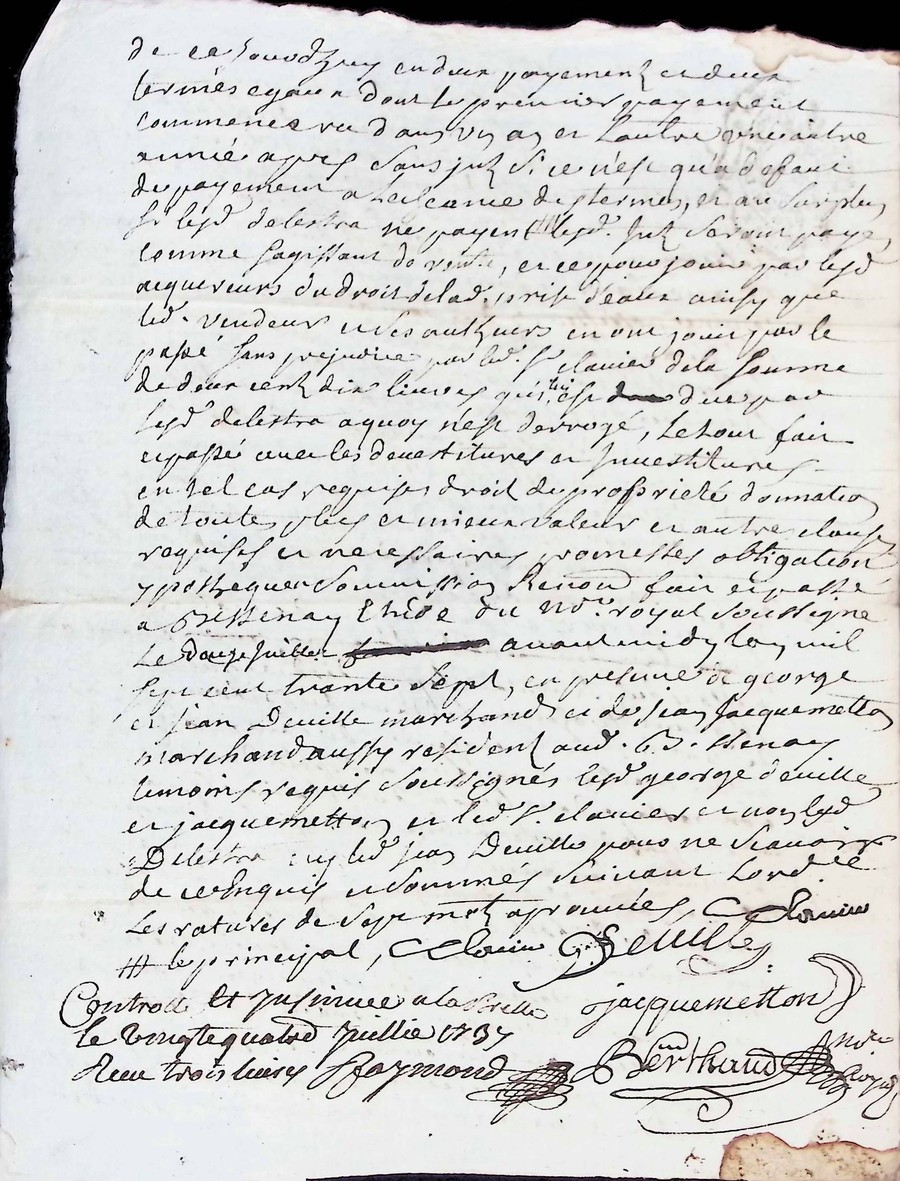 de ce Jourdhuy en deux payement et deux
termes egaux dont le premier payement
commencera dans un an et Lautre une autre
année apres sans jnt Si ce n'est qu'a defaut
de payement a Lecheance des termes, et au Surplus
Si lesd delestra ne payent /// lesd. Jnt Seront paye
comme sagissant de vente, et ce pour jouir par lesd
acquereurs du droit de lad. prise d'eaux ainsy que
led. vendeur et ses autheurs en ont jouit par le
passé Sans prejudice par led. Sr clavier de la Somme
de deux cent dix livres qui luy est due par
lesd delestra a quoy n'est derrogé, Le tout fait
et passé avec les devestitures et Jnvestitures
en tel cas requises droit de proprieté donnation
de toute plus et mieux valeur et autre clauses
requises et necessaires promesses obligation
ypothequer Soumission Renond fait et passé
a Bessenay Etude du No.re royal Soussigne
Le douze Juillet avant midy Lan mil
Sept cent trante Sept, en presence de george
et jean Deville marchand et de jean Jacquemetton
marchand aussy resident aud. Bessenay
temoins requis Soussignés lesd george deville
et jacquemetton et led. Sr. clavier et non lesd
Delestra ny led jean Deville pour ne Scavoir
de ce Enquis et Sommés Suivant Lord.ce
Les ratures de Sept mot aprouvées, Clavier
/// le principal, Clavier G. Deville
Controllé Et Jnsinué a la Brelle jacquemetton
le vingtequatre Juillie 1737
Reçu trois livres Raymond Berthaud No.re Royal